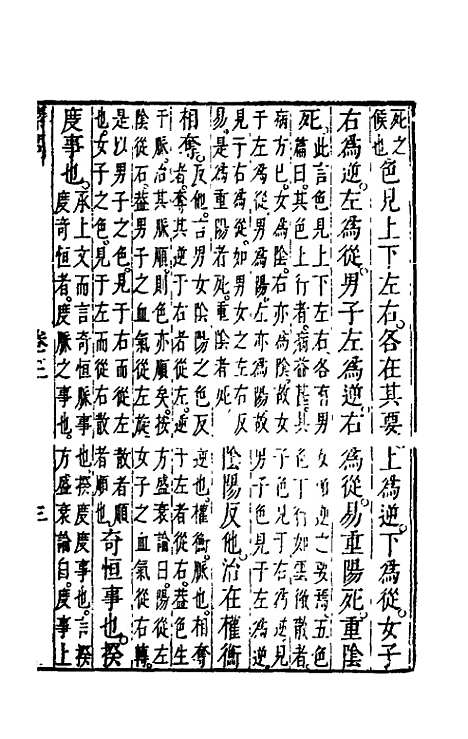 死之
候也
色見上下左右。各在其要。上爲逆。下爲從。女子
右爲逆。左爲從。男子左爲逆。右爲從。易。重陽死。重陰
死。
此言色見上下左右。各有男女順逆之要焉。五色
篇曰。其色上行者。病益甚。其色下行如雲徹散者
病方已。女爲陰。右亦爲陰。故女子色見于右爲逆。見
于左爲從。男爲陽。左亦爲陽。故男子色見于左爲逆
見于右爲從。如男女之左右反
易。是爲重陽者死。重陰者死
陰陽反他。治在權衡
相奪。
反他。言男女陰陽之色反逆也。權衡。脈也。相奪
者。奪其逆于右者從左。逆于左者從右。蓋色生
于脈。治其脈順。則色亦順矣。按方盛衰論曰。陽從左
陰從右。蓋男子之血氣從左旋。女子之血氣從右轉。
是以男子之色。見于右而從左散者順
也。女子之色。見于左而從右散者順也。
奇恒事也。揆
度事也。
承上文而言奇恒脈事也。揆度度事也。言揆
度奇恒者。度脈之事也。方盛衰論曰。度事上
卷三
三